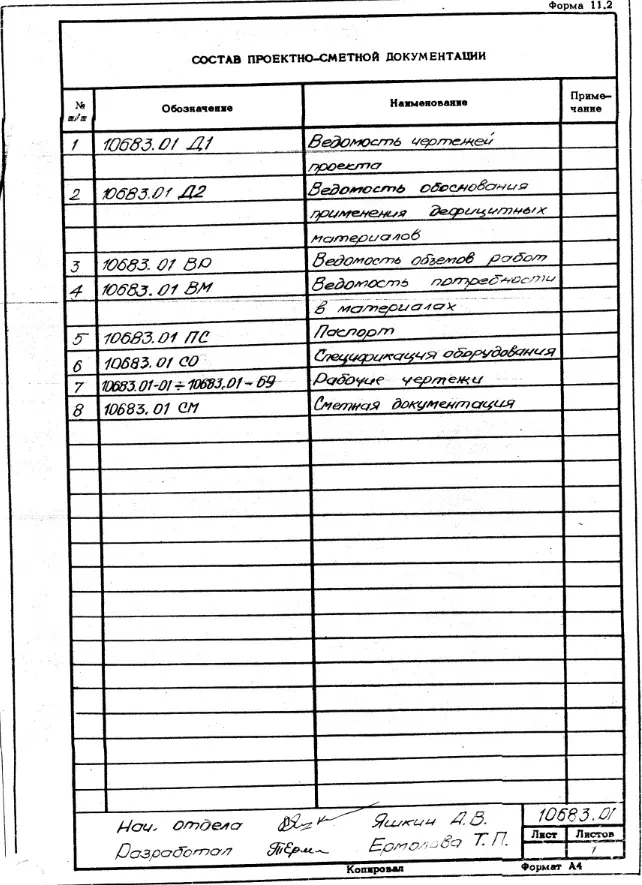 Форма 11.2
СОСТАВ ПРОЕКТНО-СМЕТНОЙ ДОКУМЕНТАЦИИ
№ п/п Обозначение Наименование Приме-
чание
1 10683.01 Д1 Ведомость чертежей
проекта
2 10683.01 Д2 Ведомость обоснования
применения дефицитных
материалов
3 10683.01 ВР Ведомость объемов работ
4 10683.01 ВМ Ведомость потребности
в материалах
5 10683.01 ПС Паспорт
6 10683.01 СО Спецификация оборудования
7 10683.01-01÷10683.01-69 Рабочие чертежи
8 10683.01 СМ Сметная документация
Нач. отдела Яшкин А.В. 10683.01
Лист Листов
1
Разработал Ермолова Т.П.
Копировал Формат А4